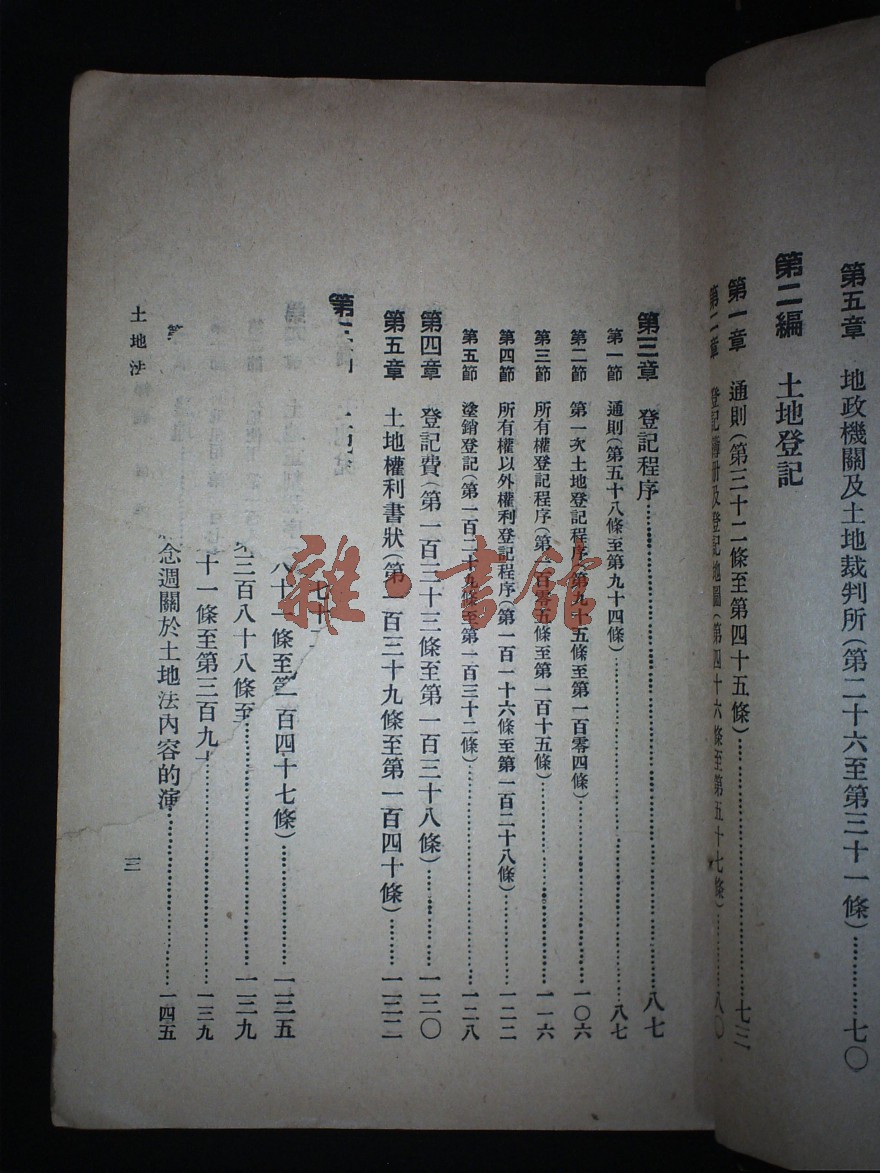 第五章 地政機關及土地裁判所(第二十六至第三十一條)…………七〇
第二編 土地登記
第一章 通則(第三十二條至第四十五條)…………七三
第二章 登記簿冊及登記地圖(第四十六條至第五十七條)…………八〇
第三章 登記程序…………八七
第一節 通則(第五十八條至第九十四條)…………八七
第二節 第一次土地登記程序(第九十五條至第一百零四條)…………一〇六
第三節 所有權登記程序(第一百零五條至第一百十五條)…………一一六
第四節 所有權以外權利登記程序(第一百一十六條至第一百二十八條)…………一二二
第五節 塗銷登記(第一百二十九條至第一百三十二條)…………一二八
第四章 登記費(第一百三十三條至第一百三十八條)…………一三〇
第五章 土地權利書狀(第一百三十九條至第一百四十條)…………一三二
第三
條至第一百四十七條)…………一三五
三百八十八條至…………一三九
十一條至第三百九十…………一三九
念週關於土地法內容的演…………一四五
土地法
三
雜·書館